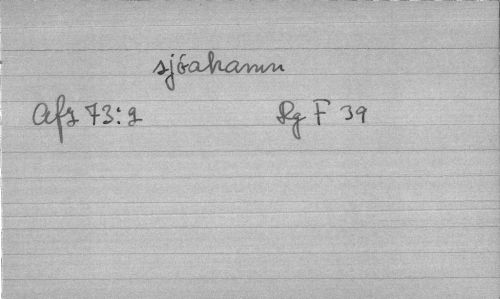 sjóahamn
Afz 73:2
Rg F 39